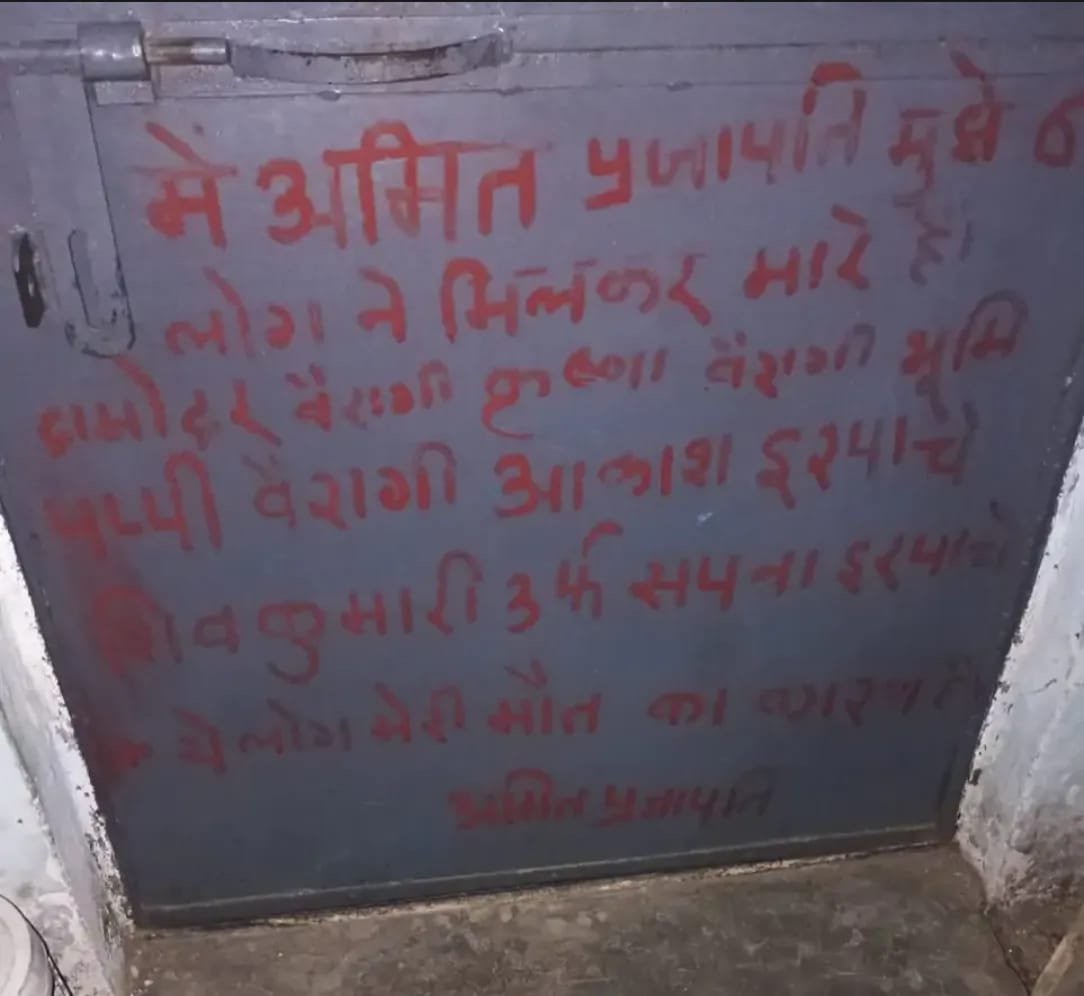 में अमित प्रजापति मुझे 6
लोग ने मिलकर मारे
दामोदर वैरागी कृष्णा वैरागी भूमि
पप्पी वैरागी आकाश इरपाचे
शिवकुमारी उर्फ सपना इरपाचे
ये लोग मेरी मौत का कारण है
अमित प्रजापति